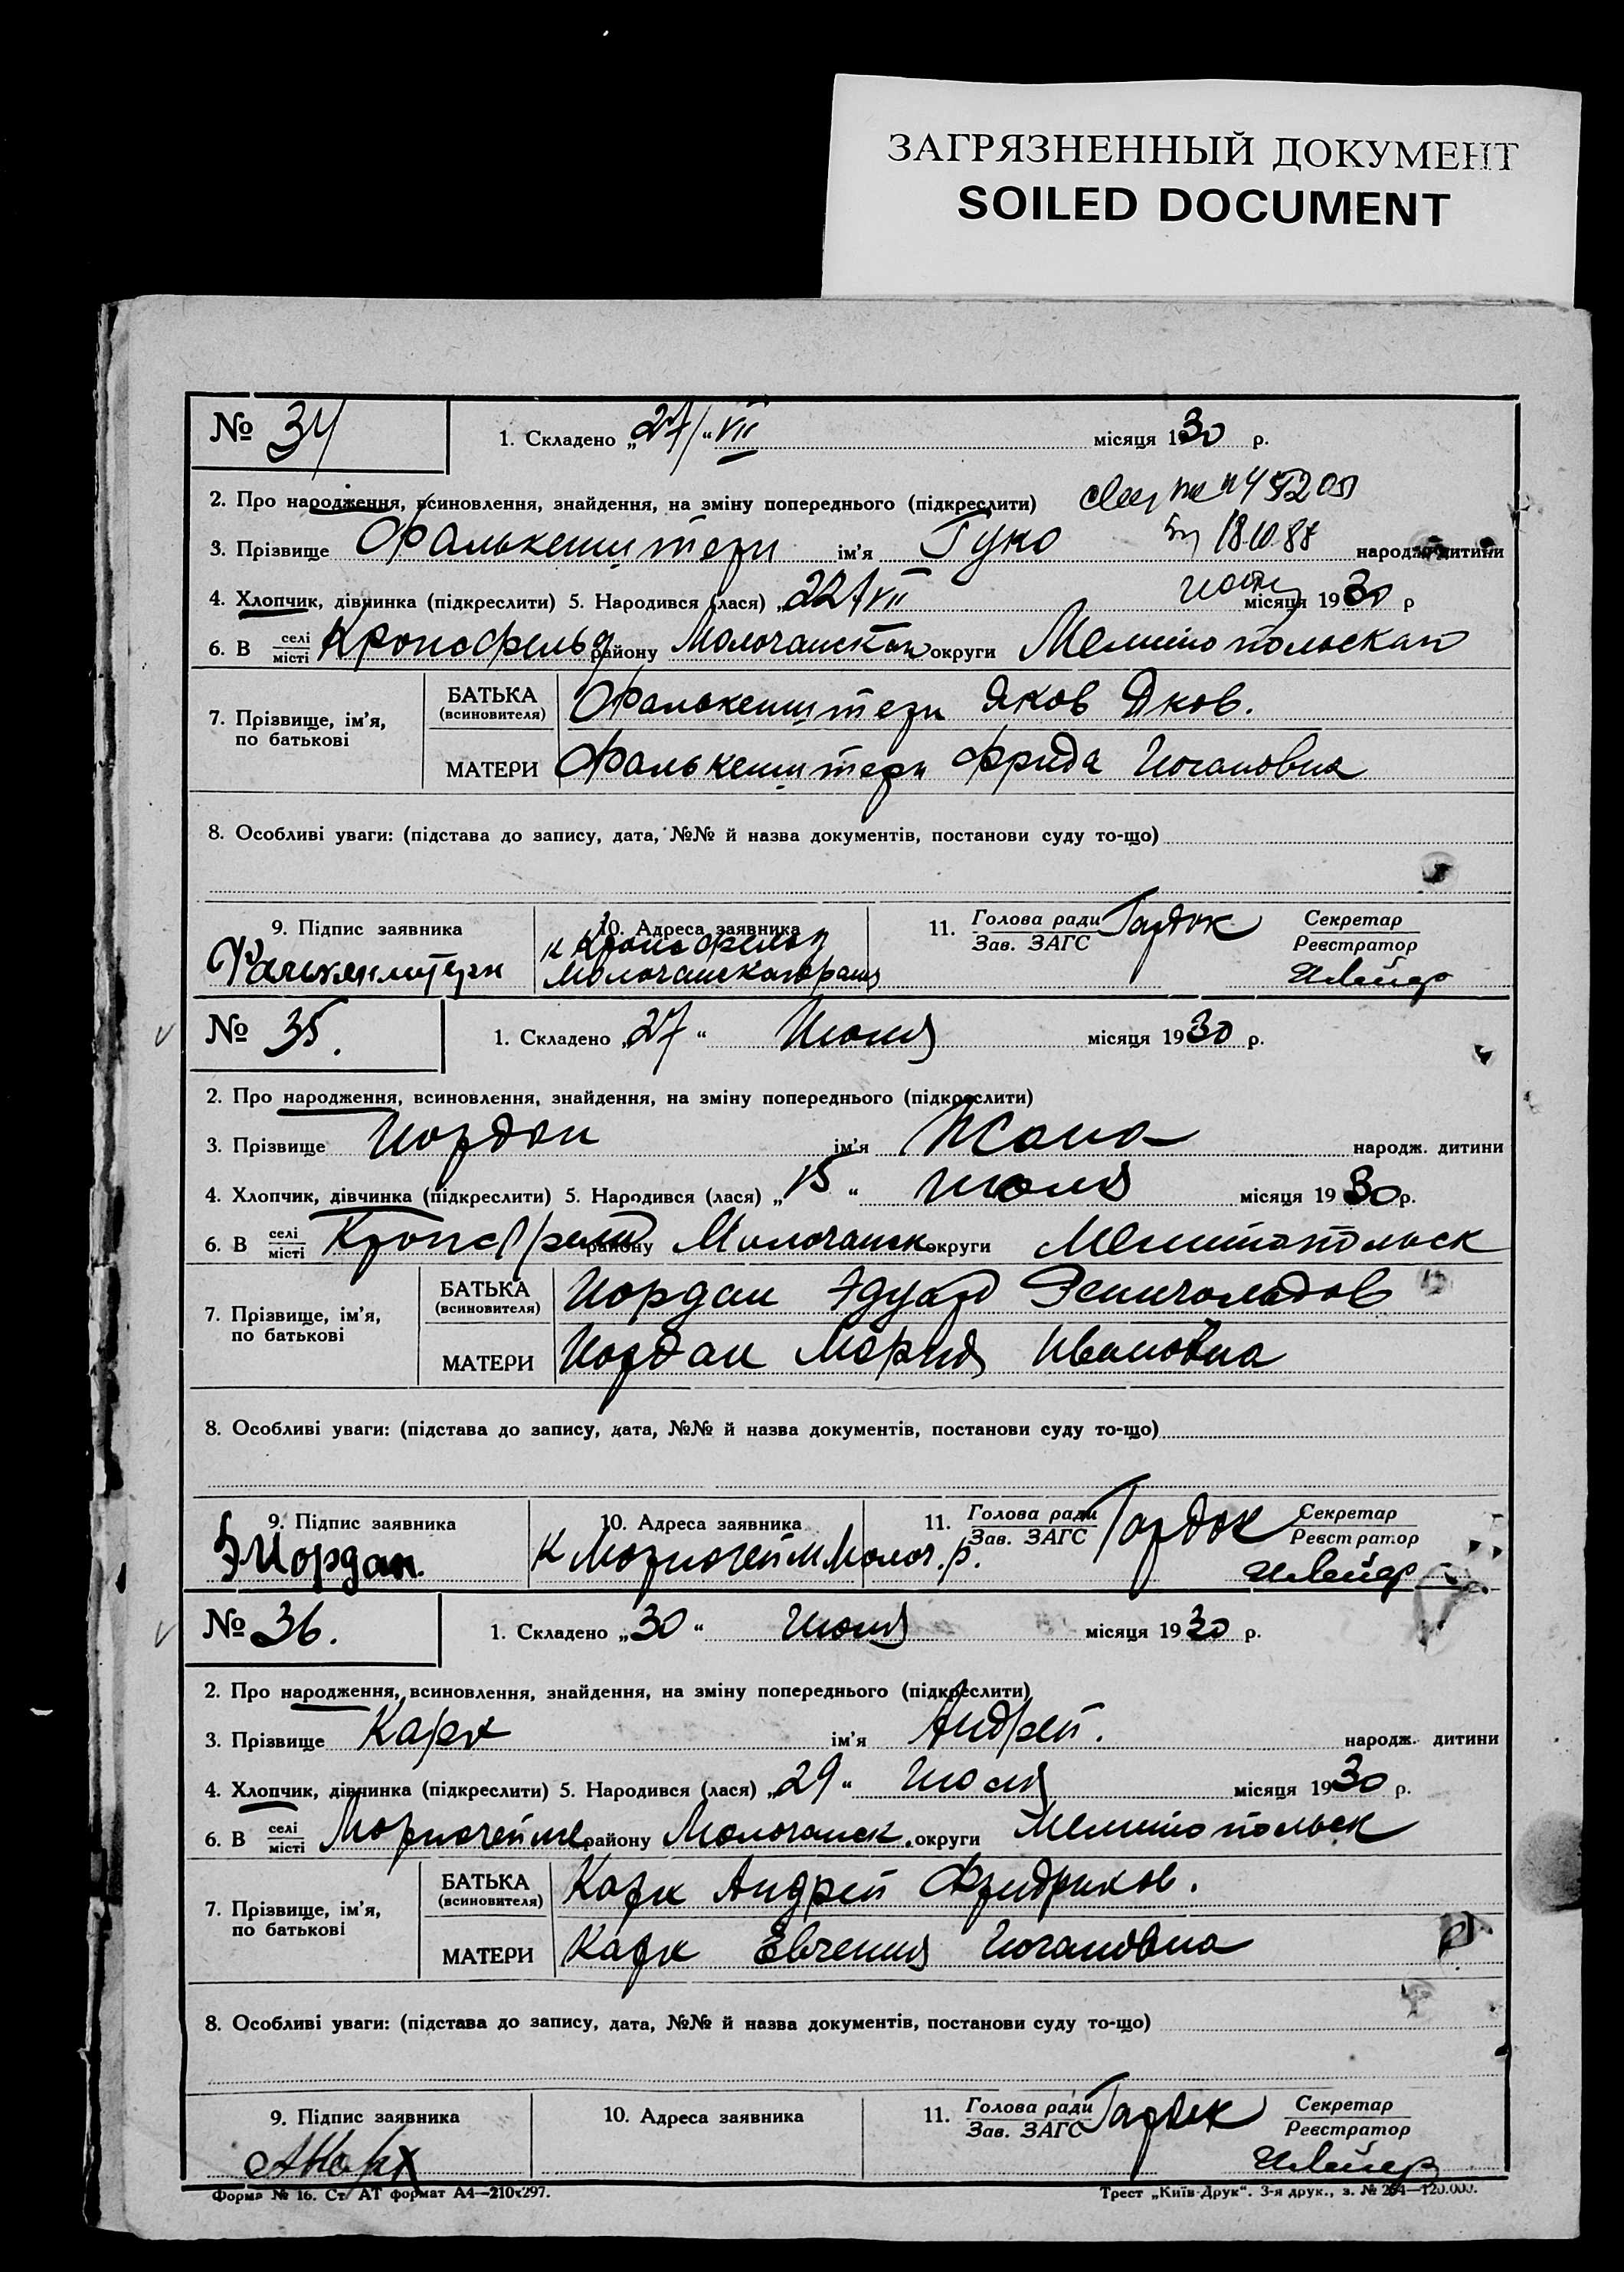 ЗАГРЯЗНЕННЫЙ ДОКУМЕНТ
SOILED DOCUMENT
№ 34
1. Складено „27/“ VII місяця 130 р.
2. Про народження, всиновлення, знайдення, на зміну попереднього (підкреслити)
18.10.88
3. Прізвище Фалькенштерн ім'я Гуко народж. дитини
4. Хлопчик, дівчинка (підкреслити) 5. Народився (лася) „22/VII місяця 1930 р
6. В селі/місті Кронсфельд району Молочанская округи Мелитопольская
7. Прізвище, ім'я, по батькові
БАТЬКА (всиновителя) Фалькенштерн Яков Яков.
МАТЕРИ Фалькенштерн Фрида Иогановна
8. Особливі уваги: (підстава до запису, дата, №№ й назва документів, постанови суду то-що)
9. Підпис заявника
Фалькенштерн
10. Адреса заявника
к Кронсфельд
Молочанского
11. Голова ради/Зав. ЗАГС
Секретар/Реєстратор
№ 35.
1. Складено „27“ Июля місяця 1930 р.
2. Про народження, всиновлення, знайдення, на зміну попереднього (підкреслити)
3. Прізвище Иордан ім'я Жана народж. дитини
4. Хлопчик, дівчинка (підкреслити) 5. Народився (лася) „15“ июля місяця 1930 р.
6. В селі/місті Кронсфельд району Молочанск округи Мелитопольск
7. Прізвище, ім'я, по батькові
БАТЬКА (всиновителя) Иордан Эдуард
МАТЕРИ Иордан Мария Ивановна
8. Особливі уваги: (підстава до запису, дата, №№ й назва документів, постанови суду то-що)
9. Підпис заявника
Э Иордан.
10. Адреса заявника
к Мариогейм Молоч. р.
11. Голова ради/Зав. ЗАГС
Секретар/Реєстратор
№ 36.
1. Складено „30“ Июля місяця 1930 р.
2. Про народження, всиновлення, знайдення, на зміну попереднього (підкреслити)
3. Прізвище Карк ім'я Андрей. народж. дитини
4. Хлопчик, дівчинка (підкреслити) 5. Народився (лася) „29“ июля місяця 1930 р.
6. В селі/місті Мариогейме району Молочанск. округи Мелитопольск
7. Прізвище, ім'я, по батькові
БАТЬКА (всиновителя) Карк Андрей Фридриков.
МАТЕРИ Карк Евгения Иогановна
8. Особливі уваги: (підстава до запису, дата, №№ й назва документів, постанови суду то-що)
9. Підпис заявника
10. Адреса заявника
11. Голова ради/Зав. ЗАГС
Секретар/Реєстратор
Форма № 16. Ст АТ формат А4—210x297.
Трест „Київ-Друк“. 3-я друк., з. № 264—120.000.